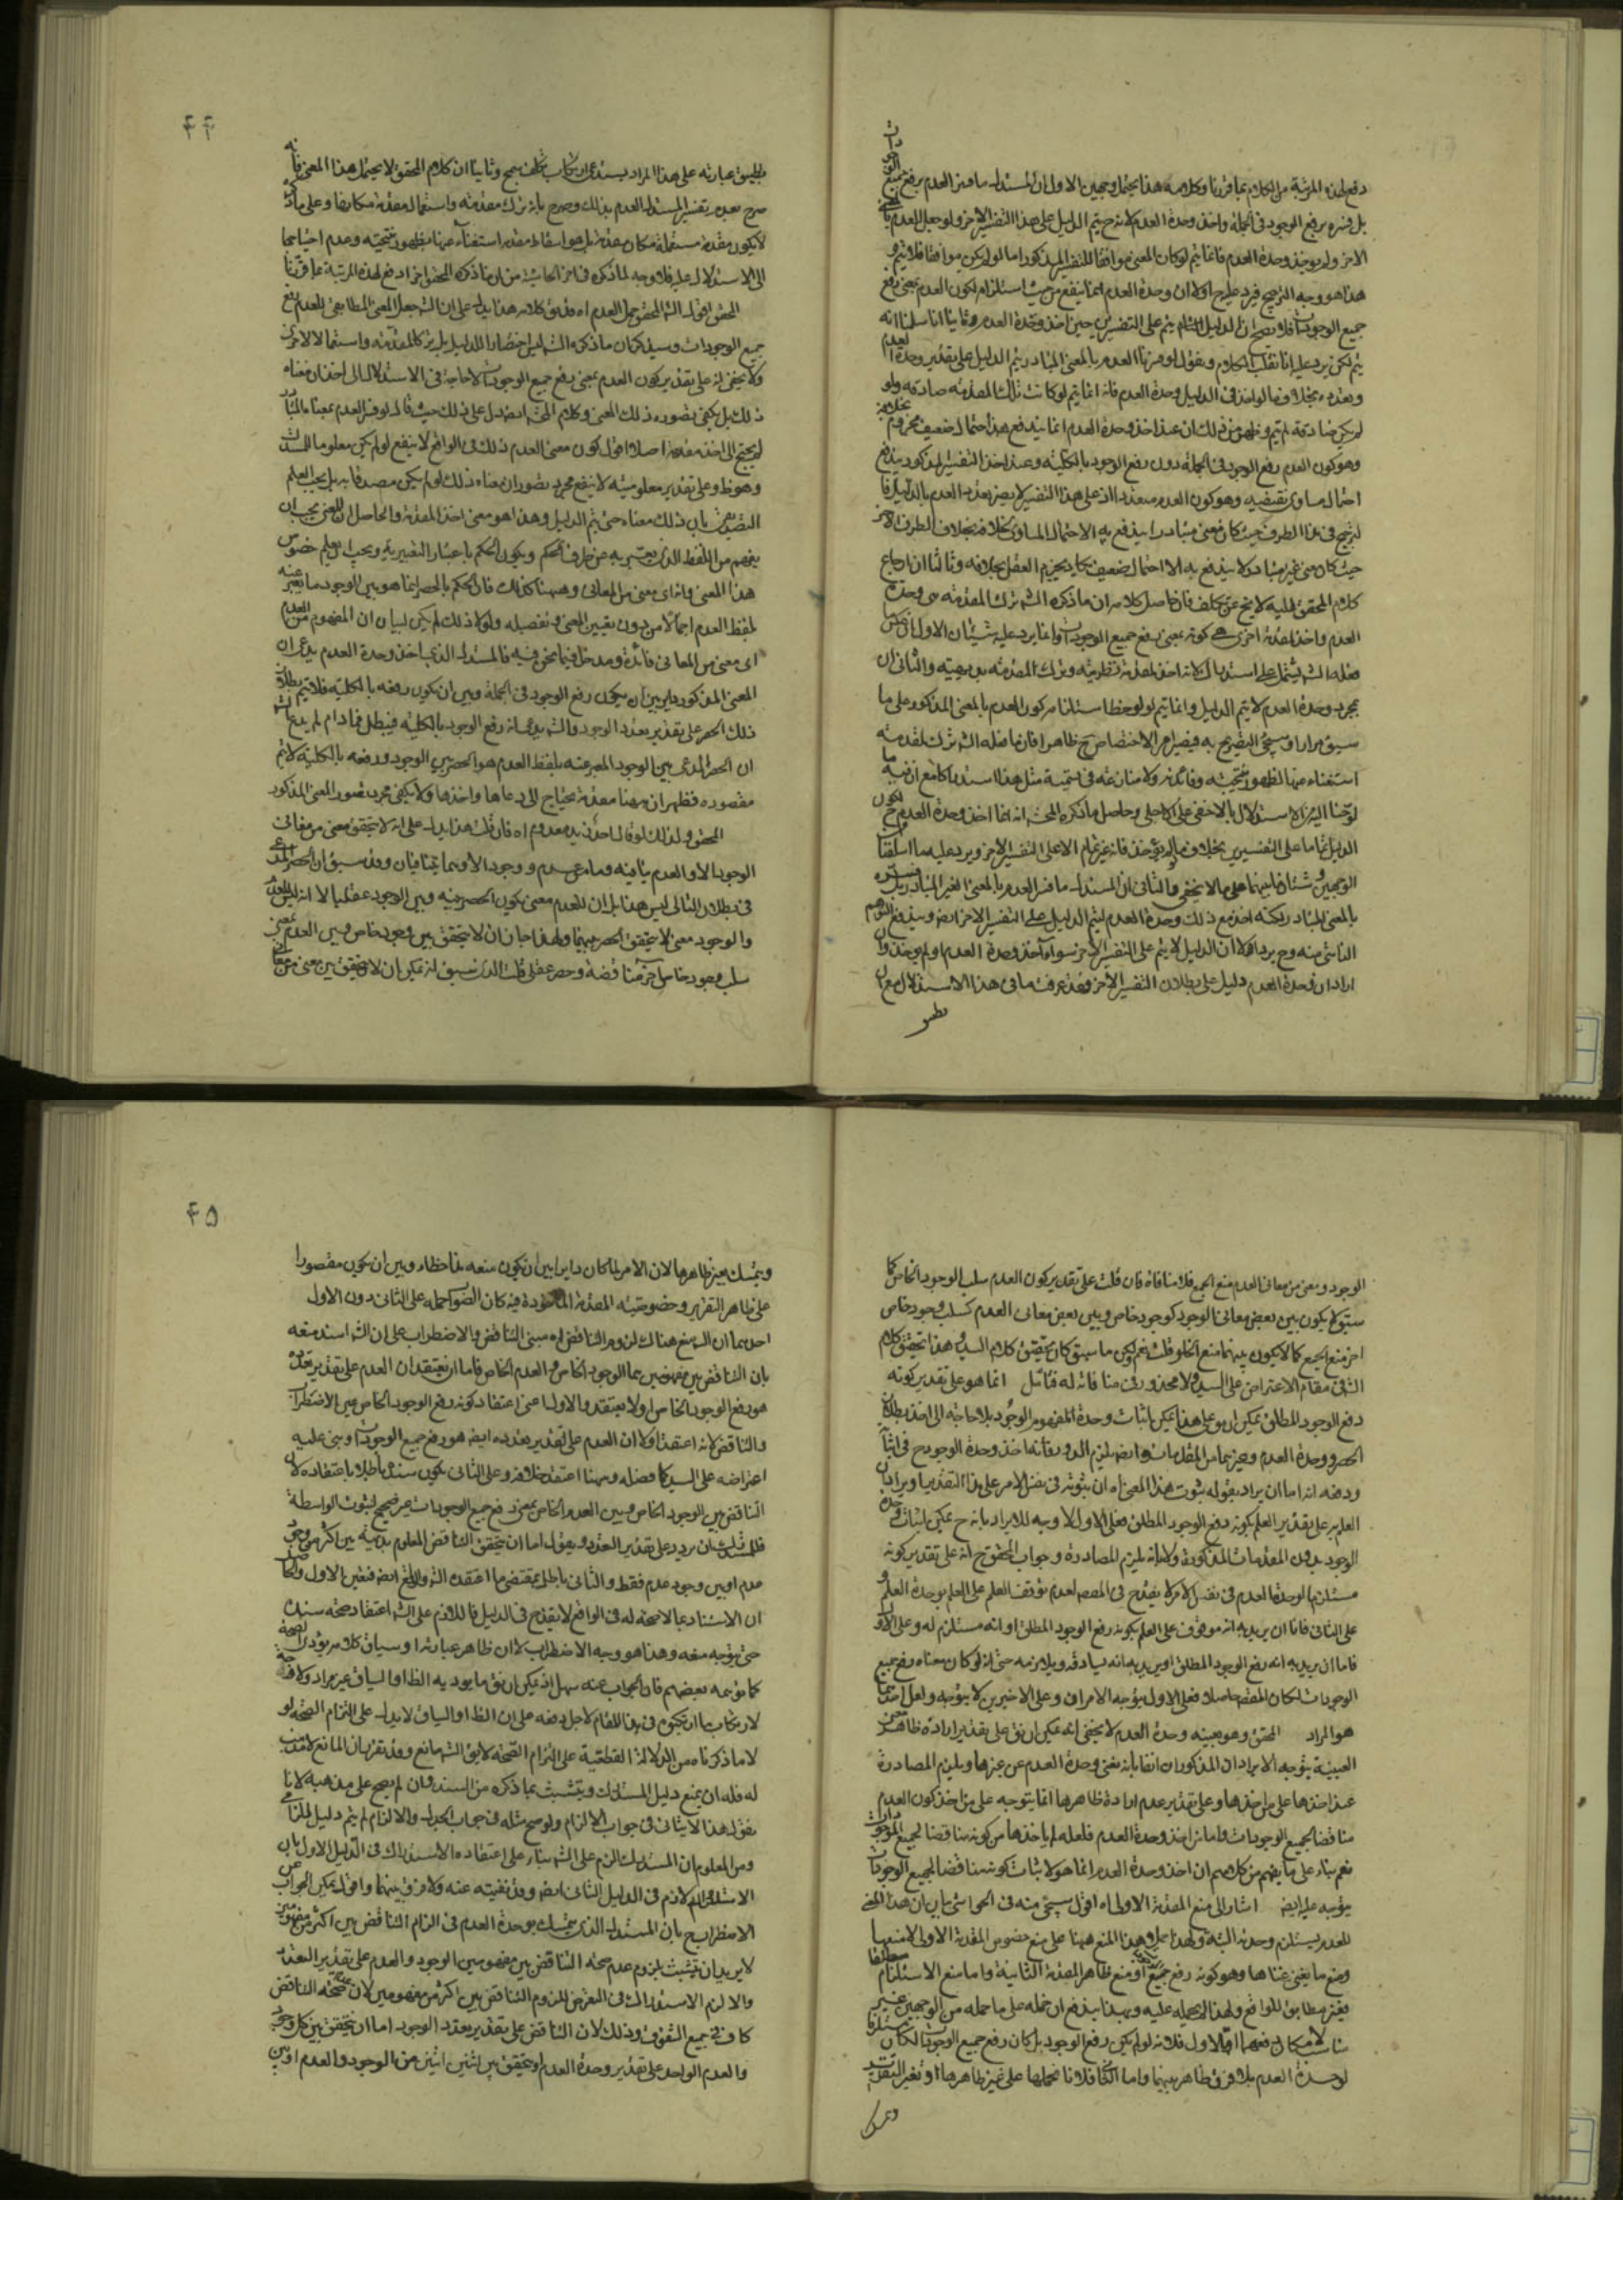 دفع لهذه المرتبة من الكلام بما قررنا وكلامه هذا يحتمل وجهين الاول ان المستدل ما فسر العدم برفع جميع الوجودات
بل فسره برفع الوجود في الجملة واخذ وحدة العدم لانه ح يتم الدليل على هذا التفسير الاخر ولو جعل العدم بالمعنى
الاخر ولم يوخذ وحدة العدم فانما يتم لو كان المعنى موافقا للتفسير المذكور اما لو لم يكن موافقا فلا يتم و
هذا هو وجه الترجيح فيرد عليه ح اولا ان وحدة العدم انما ينفع من حيث استلزامه لكون العدم بمعنى رفع
جميع الوجودات فلا يصح ان الدليل يتم على التفسيرين حين اخذ وحدة العدم وثانيا انا سلمنا انه
يتم لكن يرد عليه انا نقلب الكلام ونقول لو فسرنا العدم بالمعنى المتبادر يتم الدليل على تقدير وحدة العدم
وتعدده بخلاف ما لو اخذ في الدليل وحدة العدم فانه انما يتم لو كانت تلك المقدمة صادقة ولو
لم يكن صادقة لم يتم وظهر من ذلك ان عند اخذ وحدة العدم انما يندفع هذا احتمال ضعيف
وهو كون العدم رفع الوجود في الجملة دون رفع الوجود بالكلية وعند اخذ التفسير المذكور يندفع
احتمال مساوى نقيضه وهو كون العدم متعددا اذ على هذا التفسير لا يضر تعدد العدم بالدليل
حيث كان معنى غير متبادر لا يندفع به الا احتمال ضعيف يكاد يجزم العقل بخلافه وثالثا ان ارجاع
كلام المحقق اليه لا يخ عن تكلف فان حاصل كلامه ان ما ذكره الشه ترك المقدمة هي وحدة
العدم واخذ مقدمة اخرى هي كونه بمعنى رفع جميع الوجودات وانما يرد عليه شيئان الاول ان
بمجرد وحدة العدم لا يتم الدليل وانما يتم لو لوحظ استلزامه كون العدم بالمعنى المذكور وعلى ما
سبق مرارا وسيجئ التصريح به فيصير امر الاختصاص ح ظاهرا فان ما فعله الشه ترك لمقدمة
استغناء عنها لظهور نتيجته وفائدته ولا منازعة في تسمية مثل هذا استدراكا مع ان فيه ما
الدليل تماما على التفسيرين بخلاف ما لو لم يؤخذ فانه غير تمام الا على التفسير الاخر ويرد عليه ما اسلفنا
الوجهين وشتان ما بينهما على ما لا يخفى والثاني ان المستدل ما فسر العدم بالمعنى الغير المتبادر بل فسره
بالمعنى المتبادر لكنه اخذ مع ذلك وحدة العدم ليتم الدليل على التفسير الاخر ايضه ويندفع التوهم
الناشى منه وح يرد اولا ان الدليل لا يتم على التفسير الاخر سواء اخذ وحدة العدم او لم يوخذ وان
اراد ان وحدة العدم دليل على بطلان التفسير الاخر فقد عرفت ما في هذا الاستدلال مع ان
تطبيق
۴۴
تطبيق عبارته على هذا المراد يستدعى ارتكاب تكلف سمج وثانيا ان كلام المحقق لا يحتمل هذا المعنى فانه
صرح بعده بتفسير المستدل العدم بذلك وصرح بانه ترك مقدمة واستعمال مقدمة مكانها وعلى ما ذكره
لا يكون مقدمة مستعملة مكان مقدمة بل هو اسقاط مقدمة استغناء عنها لظهور نتيجته وعدم احتياجها
الى الاستدلال عليه فلا وجه لما ذكره في اخر الحاشية من ان ما ذكره المحقق اخرا دفع لهذه المرتبة بما قررنا
المحقق اقول الشه المحقق حمل العدم اه قد يق كلامه هذا يدل على ان الشه جعل المعنى المطابقى للعدم رفع
جميع الوجودات وسيذكر ان ما ذكره الشه ليس اختصارا للدليل بل ترك المقدمة واستعمالا لاخرى
ولا يخفى انه على تقدير كون العدم بمعنى رفع جميع الوجودات لا حاجة في الاستدلال الى اخذ ان معناه
ذلك بل يكفى تصوره ذلك المعنى وكلام المحشى ايضه يدل على ذلك حيث قال لو فسر العدم بمعناه المتبادر
لم يحتج الى اخذ مقدمة اصلا اقول كون معنى العدم ذلك في الواقع لا ينفع لو لم يكن معلوما للمستدل
وهو ظ وعلى تقدير معلوميته لا ينفع مجرد تصور ان معناه ذلك لو لم يكن مصدقا به بل يجب العلم
التصديقى بان ذلك معناه حتى يتم الدليل وهذا هو معنى اخذ المقدمة والحاصل ان المعنى يجب ان
يفهم من اللفظ الذى يعتبر به عن طرف الحكم ويكون الحكم باعتبار التعبير به ويجب ان يعلم خصوص
هذا المعنى وانه اى معنى من المعانى وههنا كذلك فان الحكم بالحصر انما هو بين الوجود وما يعبر عنه
بلفظ العدم اجمالا من دون تعيين المعنى وتفصيله ولولا ذلك لم يكن لبيان ان المفهوم من العدم
اى معنى من المعانى فائدة ومدخل فيما نحن فيه فالمستدل الذى اخذ وحدة العدم يدعى ان
المعنى المذكور داير بين ان يكون رفع الوجود في الجملة وبين ان يكون رفعه بالكلية فلا يتم بطلان
ذلك الحصر على تقدير تعدد الوجود والشه يدعى انه رفع الوجود بالكلية فيبطل فما دام لم يدع
ان الحصر المدعى بين الوجود المعبر عنه بلفظ العدم هو الحصر بين الوجود ورفعه بالكلية لا يتم
مقصوده فظهر ان ههنا مقدمة يحتاج الى ادعاها واخذها ولا يكفى مجرد تصور المعنى المذكور
المحقق ولذلك لو قال احد زيد معدوم اه فان قلت هذا يدل على انه لا يتحقق معنى من معانى
الوجود الا والعدم ينافيه وما من عدم ووجود الا وهما يتنافيان وقد سبق ان الحصر المدعى
في بطلان التالى ليس هذا بل ان للعدم معنى يكون الحصر بينه وبين الوجود عقليا لا انه ليس للعدم
والوجود معنى لا يتحقق الحصر بينهما ولهذا جاز ان لا يتحقق بين وجود خاص وبين العدم بمعنى
سلب وجود خاص اخر مناقضة وحصر عقلى قلت الذى سبق انه يمكن ان لا يتحقق بين معنى من معانى
الوجود ومعنى من معانى العدم منع الجمع فلا منافاة فان قلت على تقدير كون العدم سلب الوجود الخاص كما
سبق لم يكون بين بعض معانى الوجود كوجود خاص وبين بعض معانى العدم كسلب وجود خاص
اخر منع الجمع كما لا يكون بينهما منع الخلو قلت نعم ولكن ما سبق كان تحقيق كلام السيد وهذا تحقيق كلام
الشه في مقام الاعتراض على السيد ولا محذور في منافاته له فتأمل انما هو على تقدير كونه
رفع الوجود المطلق يمكن ان يق على هذا يمكن اثبات وحدة المفهوم الوجود بلا حاجة الى اخذ بطلان
الحصر ووحدة العدم وغيرهما من المقدمات وايضه يلزم الدور فانه اخذ وحدة الوجود ح في اثباتها
ودفعه انه اما ان يراد بقوله ثبوت هذا المعنى اه ان ثبوته في نفس الامر على هذا التقدير او يراد ان
العلم به على تقدير العلم بكونه رفع الوجود المطلق فعلى الاول لا وجه للايراد بانه ح يمكن اثبات وحدة
الوجود بدون المقدمات المذكورة ولا بانه يلزم المصادرة وجواب المحقق ح انه على تقدير كونه
مستلزم الوحدة العدم في نفس الامر لا يقدح في المقصد لعدم توقف العلم على العلم بوحدة العلم و
على الثانى فاما ان يريد به انه موقوف على العلم بكونه رفع الوجود المطلق او انه مستلزم له وعلى الاول
فاما ان يريد به انه رفع الوجود المطلق او يريد به انه يساوقه ويلازمه حتى انه لو كان معناه رفع جميع
الوجودات لكان المقصد حاصلا فعلى الاول يتوجه الامران وعلى الاخيرين لا يتوجه ولعل احدهما
هو المراد المحقق وهو بعينه وحدة العدم لا يخفى انه يمكن ان يق على تقدير ارادة ظاهر معنى
العينية يتوجه الايرادان المذكوران انفا بانه يغنى وحدة العدم عن غيرها ويلزم المصادرة
عند اخذها على من اخذها وعلى تقدير عدم ارادة ظاهرها انما يتوجه على من اخذ كون العدم
مناقضا لجميع الوجودات واما من اخذ وحدة العدم فلعله لم ياخذها من كونه مناقضا لجميع الوجودات
نعم بناء على ما يفهم من كلامهم ان اخذ وحدة العدم انما هو لاثبات كونه مناقضا لجميع الوجودات
يتوجه عليه ايضه اشار الى منع المقدمة الاولى اه اقول سيجئ منه في الحواشى ما يدل ان هذا المعنى
للعدم يستلزم وحدته البتة ولهذا حمل هذا المنع ههنا على منع خصوص المقدمة الاولى لا منعها
ومنع ما يغنى غناها وهو كونه رفع جميع الوجودات او منع ظاهر المقدمة الثانية واما منع الاستلزام مطلقا
فغير مطابق للواقع ولهذا لم يحمله عليه وبهذا يندفع ان حمله على ما حمله من الوجهين غير
مناسب لامكان دفعهما اما الاول فلانه لو لم يكن رفع الوجود بل كان رفع جميع الوجودات لكان مستلزما
لوحدة العدم بلا فرق ظاهر بينهما واما الثانى فلانا نحملها على غير ظاهرها او نغير التقرير
ونتمسك
۴۵
ونتمسك بغير ظاهرها لان الامر لما كان دايرا بين ان يكون منعه هذا خطاء وبين ان يكون مقصورا
على ظاهر التقرير وخصوصية المقدمة الماخوذة فيه كان الصواب حمله على الثانى دون الاول
احدهما ان الشه منع هناك لزوم التناقض اه مبنى التناقض والاضطراب على ان الشه اسند منعه
بان التناقض بين مفهومين هما الوجود الخاص والعدم الخاص فاما ان يعتقد ان العدم على تقدير تعدده
هو رفع الوجود الخاص او لا يعتقد والاول اعنى اعتقاد كونه رفع الوجود الخاص عين الاضطراب
والتناقض لانه اعتقد اولا ان العدم على تقدير تعدده ايضه هو رفع جميع الوجودات وبنى عليه
اعتراضه على السيد كما فصله وههنا اعتقد خلافه وعلى الثانى يكون سنده باطلا باعتقاده لان
التناقض بين الوجود الخاص وبين العدم الخاص بمعنى رفع جميع الوجودات غير صحيح لثبوت الواسطة
فللمستدل ان يردد على تقدير التعدد ويقول اما ان يتحقق التناقض المعلوم بداهة بين اكثر من وجود
عدم او بين وجود عدم فقط والثانى باطل بمقتضى ما اعتقده الشه والواقع ايضه فتعين الاول ولما كان
ان الاستناد بما لا صحة له في الواقع لا يقدح في الدليل فاللازم على الشه اعتقاد صحة سنده
حتى يتوجه منعه وهذا هو وجه الاضطراب لا ان ظاهر عبارته او سياق كلامه يؤدى الصحة
كما توهمه بعضهم فان الجواب عنه سهل اذ يمكن ان يق ما يوديه الظ او السياق غير مراد ولا حاجة
لارتكاب ما ارتكبوه في هذا المقام لاجل دفعه على ان الظ او السياق لا يدل على التزام الصحة لو
لا ما ذكرناه من الدلالة القطعية على التزام الصحة لا يق الشه مانع وقد تقرر ان المانع لا مذهب
له فله ان يمنع دليل المستدل ويتشبث بما ذكره من السند وان لم يصح على مذهبه لانا
نقول هذا لا يتاتى في جواب الالزام ولو صح مثله في جواب الجدل والالزام لم يتم دليل الزامى
ومن المعلوم ان المستدل الزم على الشه بناء على اعتقاده الاستدراك في الدليل الاول بان
الاستدراك لازم في الدليل الثانى ايضه وقد نفيته عنه ولا فرق بينهما واقول يمكن الجواب عن
الاضطراب ح بان المستدل الذى يتمسك بوحدة العدم في الزام التناقض بين اكثر من مفهومين
لا يريد ان يتشبث بلزوم عدم صحة التناقض بين مفهومين الوجود والعدم على تقدير التعدد
والا لزم الاستدراك في التعرض للزوم التناقض بين اكثر من مفهومين لان عدم صحة التناقض
كاف في جميع الشقوق وذلك لان التناقض على تقدير تعدد الوجود اما ان يتحقق بين كل وجود
والعدم الواحد على تقدير وحدة العدم او يتحقق بين اثنين اثنين من الوجود والعدم او بين